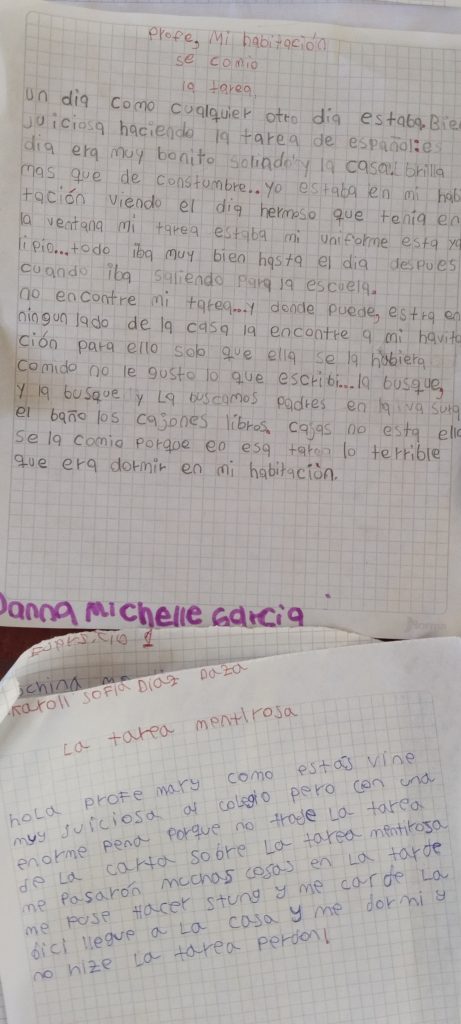 Profe, Mi habitación
se comio
la tarea.
un dia como cualquier otro dia estaba. Bien
juiciosa haciendo la tarea de español: es
dia era muy bonito soliado y la casa brilla
mas que de constumbre.. yo estaba en mi habi
tación viendo el dia hermoso que tenia en
la ventana mi tarea estaba mi uniforme esta ya
lipio... todo iba muy bien hasta el dia despues
cuando iba saliendo para la escuela.
no encontre mi tarea... y donde puede, estra en
ningun lado de la casa la encontre a mi havita
ción para ello solo que ella se la hubiera
comido no le gusto lo que escribi... la busque,
y la busque y La buscamos padres en la
el baño los cajones libros. cajas no esta ella
se la comio porque en esa tarea lo terrible
que era dormir en mi habitación.
Danna Michelle Garcia
1
Karoll Sofia Diaz Daza
La tarea mentirosa
hola profe mary como estás vine
muy juiciosa al colegio pero con una
enorme pena porque no traje La tarea
de La carta sobre La tarea mentirosa
me pasarón muchas cosas en La tarde
me puse hacer stung y me car de La
bici llegue a La casa y me dormi y
no hize La tarea perdon!